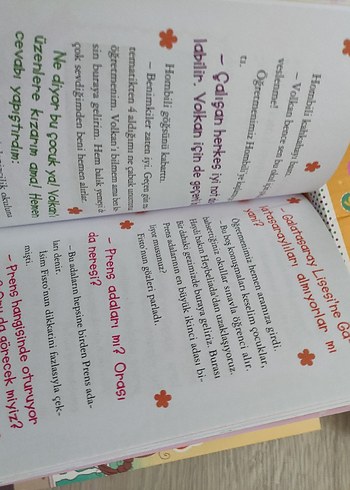 Hombili kalabalığı
– Volkan bence sen bu okula
veslenme!
Öğretmenimiz Hombili'ye
tı.
– Çalışan herkes iyi not
labilir. Volkan için de geçerli
Hombili göğsünü kabarttı.
– Benimkiler zaten iyi. Geçen gün
tematikten 4 aldığımı ne çabuk unuttunuz
öğretmenim. Volkan'ı bilmem ama ben
sin buraya gelirim. Hem balık yemeyi
çok sevdiğimden beni hemen alırlar.
Ne diyor bu çocuk ya! Volkan
üzenlere kızarım ama! Hemen
cevabı yapıştırdım:
Galatasaray Lisesi'ne Ga
latasaraylıları almıyorlar mı
yani?
Öğretmenimiz hemen aramıza girdi.
– Bu boş konuşmaları keselim çocuklar,
bahsettiğiniz okullar sınavla öğrenci alır.
Haydi bakın Heybeliada'dan uzaklaşıyoruz.
Bir dahaki gezimizde buraya geliriz. Burası
Prens adalarının en büyük ikinci adası bi-
liyor musunuz?
Fisto'nun gözleri parladı.
– Prens adaları mı? Orası
da neresi?
– Bu adaların hepsine birden Prens ada-
ları denir.
İsim Fisto'nun dikkatini fazlasıyla çek-
mişti.
– Prens hangisinde oturuyor
da görecek miyiz?